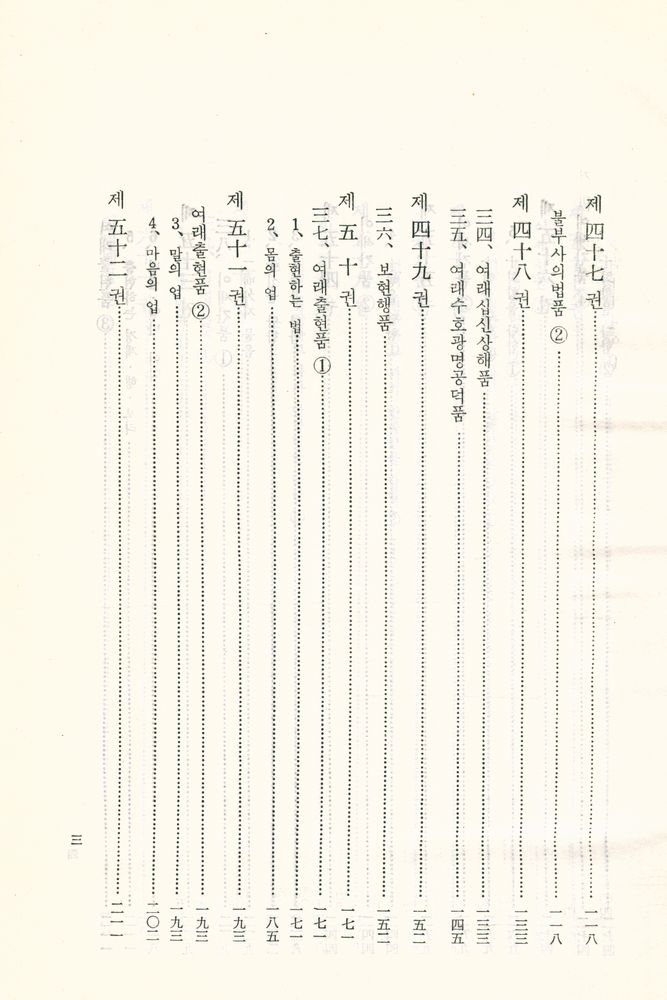 제 四十七 권 ⋯⋯ 一一八
불부사의법품 ② ⋯⋯ 一一八
제 四十八 권 ⋯⋯ 一三三
三四、 여래십신상해품 ⋯⋯ 一三三
三五、 여래수호광명공덕품 ⋯⋯ 一四五
제 四十九 권 ⋯⋯ 一五二
三六、 보현행품 ⋯⋯ 一五二
제 五 十 권 ⋯⋯ 一七一
三七、 여래출현품 ① ⋯⋯ 一七一
1、 출현하는 법 ⋯⋯ 一七一
2、 몸의 업 ⋯⋯ 一八五
제 五十一 권 ⋯⋯ 一九三
여래출현품 ② ⋯⋯ 一九三
3、 말의 업 ⋯⋯ 一九三
4、 마음의 업 ⋯⋯ 二〇二
제 五十二 권 ⋯⋯ 二一一
三